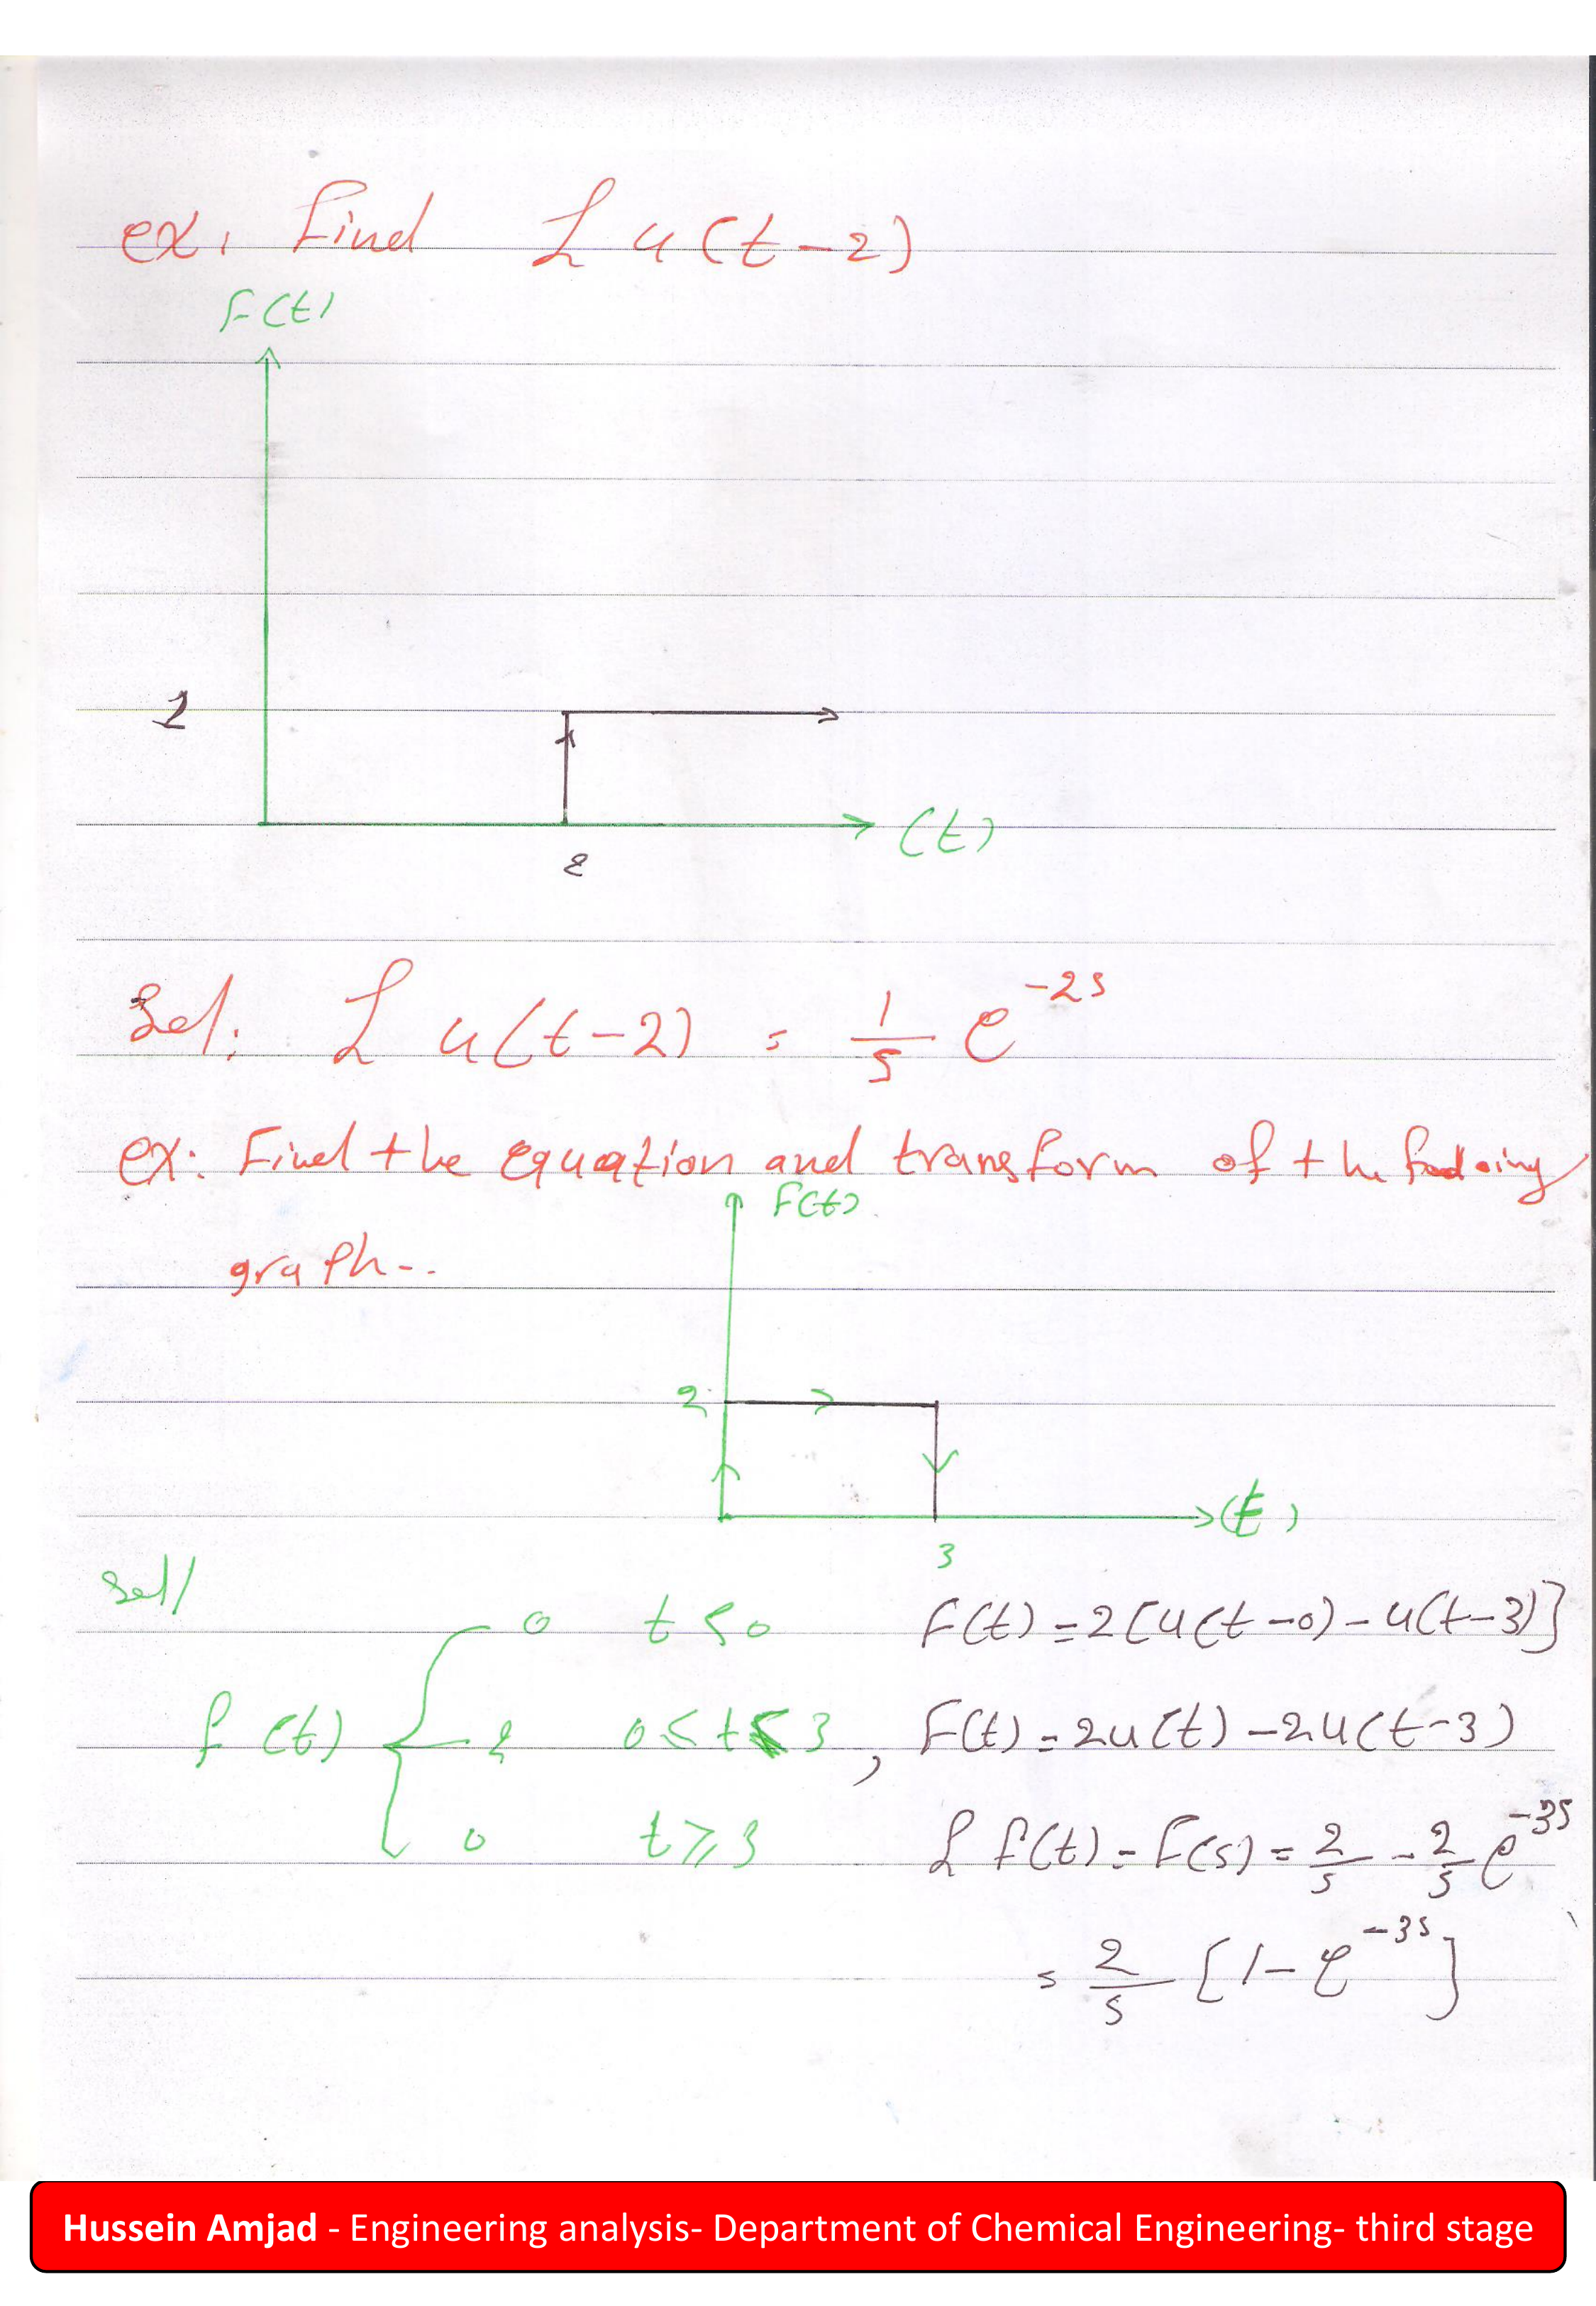 ex. Find ℒ u(t-2)
F(t)
1
(t)
2
Sol: ℒ u(t-2) = 1/s e^-2s
ex: Find the equation and transform of the
F(t)
graph--
2
(t)
3
Sol/
0 t<0 F(t) = 2[u(t-0) - u(t-3)]
f (t) 2 0≤t<3 , F(t) = 2u(t) - 2u(t-3)
0 t≥3 ℒ f(t) = F(s) = 2/s - 2/s e^-3s
= 2/s [1 - e^-3s]
Hussein Amjad - Engineering analysis- Department of Chemical Engineering- third stage